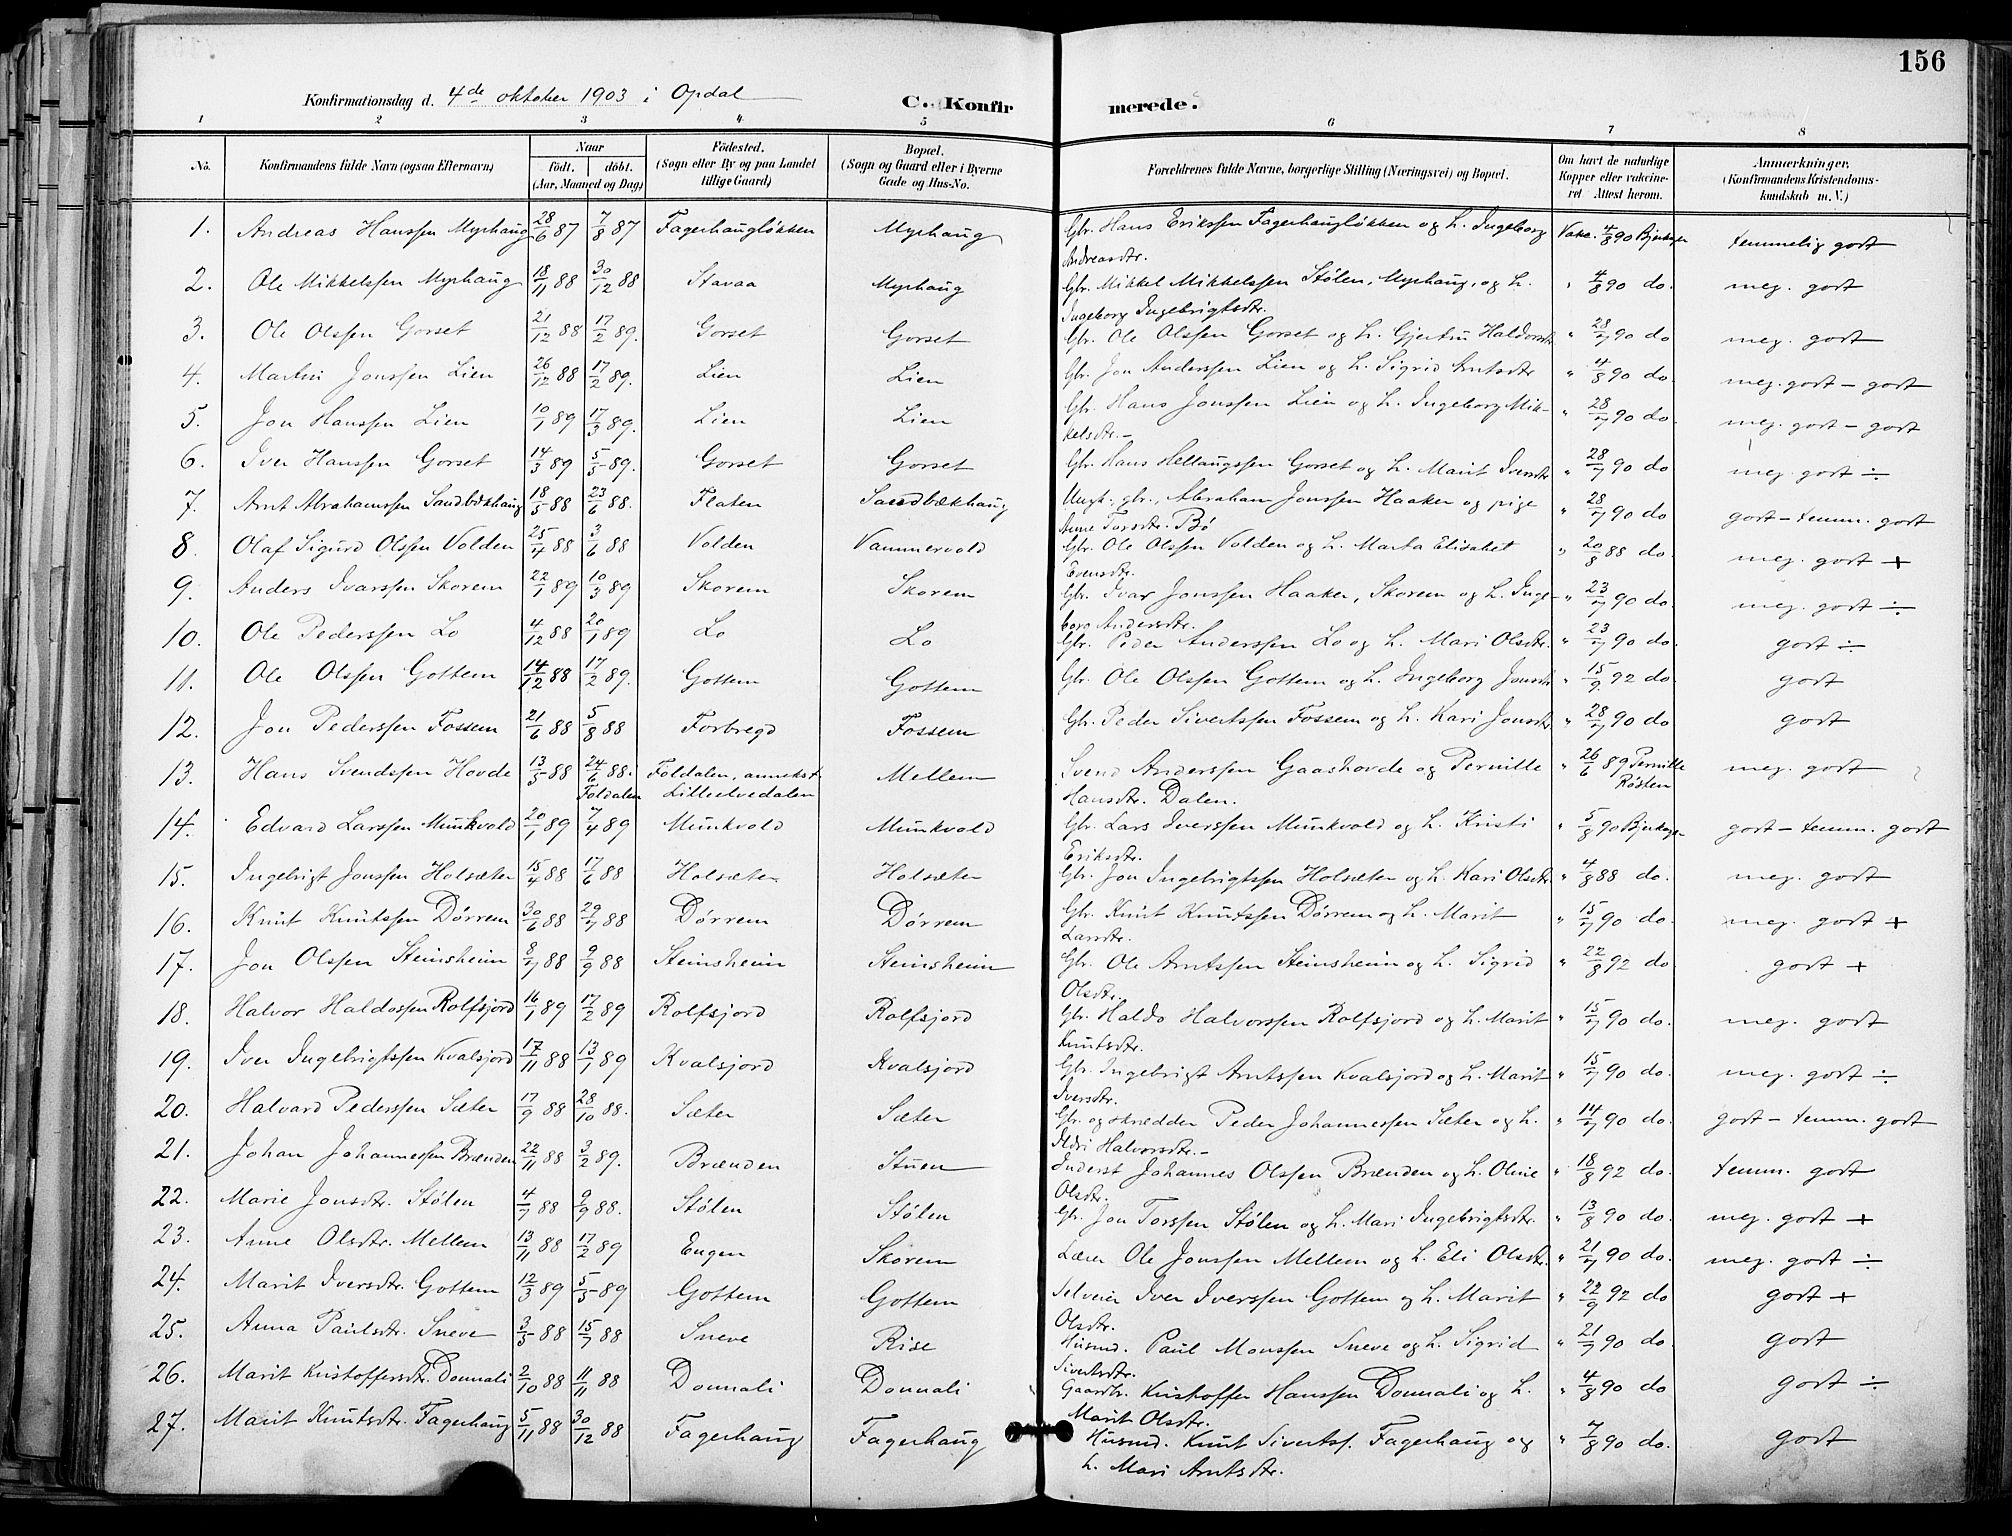 156
Konfirmationsdag d. 4de oktober 1903 i Opdal C. Konfirmerede.
1 2 3 4 5 6 7 8
No. Konfirmandens fulde Navn (ogsaa Efternavn) Naar født. døbt. (Aar, Maaned og Dag) Fødested. (Sogn eller By og paa Landet tillige Gaard) Bopæl. (Sogn og Gaard eller i Byerne Gade og Hus-No. Forældrenes fulde Navne, borgerlige Stilling (Næringsvei) og Bopæl. Om havt de naturlige Kopper eller vakcineret Attest herom. Anmærkninger. (Konfirmandens Kristendomskundskab m. V.)
1. Andreas Hanssen Myrhaug 28/6 87 7/8 87 Fagerhaugløkken Myrhaug Gbr. Hans Erikssen Fagerhaugløkken og h. Ingeborg Vakc. 4/8 90 temmelig godt
Andreasdtr.
2. Ole Mikkelssen Myrhaug 18/11 88 30/12 88 Stavaa Myrhaug Gbr. Mikkel Mikkelssen Stølen, Myrhaug, og h. " 4/8 90 do. meg. godt
Ingeborg Ingebrigtsdtr.
3. Ole Olssen Gorset 21/12 88 17/2 89. Gorset Gorset Gbr. Ole Olssen Gorset og h. Gjertru Haldorsdtr " 28/7 90 do meg. godt
4. Martin Jonssen Lien 26/12 88 17/2 89. Lien Lien Gbr. Jon Anderssen Lien og h. Sigrid Arntsdtr " 4/8 90 do. meg. godt - godt
5. Jon Hanssen Lien 10/1 89 17/3 89. Lien Lien Gbr. Hans Jonssen Lien og h. Ingeborg Mik- " 28/7 90 do. meg. godt - godt
kelsdtr.-
6. Iver Hanssen Gorset 14/3 89 5/5 89. Gorset Gorset Gbr. Hans Hellaugssen Gorset og h. Marit Iversdtr " 28/7 90 do meg. godt ÷
7. Arnt Abrahamssen Sandbækhaug 18/5 88 23/6 88. Flaten Sandbækhaug Ungk. gbr., Abraham Jonssen Haaker og pige " 28/7 90 do godt - temm. godt
Anne Torsdtr. Bø
8. Olaf Sigurd Olssen Volden 25/4 88 3/6 88 Volden Vammervold Gbr. Ole Olssen Volden og h. Marta Elisabet " 20/8 88 do. meg. godt +
Evensdtr.
9. Anders Ivarssen Skorem 22/1 89 10/3 89 Skorem Skorem Gbr. Ivar Jonssen Haaker, Skorem og h. Inge- " 23/7 90 do. meg. godt ÷
borg Andersdtr.
10. Ole Pederssen Lo 4/12 88 20/1 89 Lo Lo Gbr. Peder Anderssen Lo og h. Mari Olsdtr. " 23/7 90 do. godt ÷
11. Ole Olssen Gottem 14/12 88 17/2 89. Gottem Gottem Gbr. Ole Olssen Gottem og h. Ingeborg Jonsdtr " 15/9 92 do. godt
12. Jon Pederssen Fossem 21/6 88 5/8 88 Forbregd Fossem Gbr. Peder Sivertssen Fossem og h. Kari Jonsdtr " 28/7 90 do godt
13. Hans Svendssen Hovde 13/5 88 24/6 88. Foldalen Foldalen, anneks t. Lilleelvedalen Mellem Svend Anderssen Gaashovde og Pernille " 26/6 89 Pernille Røsten meg. godt
Hansdtr. Dalen.
14. Edvard Larssen Munkvold 20/1 89 7/4 89 Munkvold Munkvold Gbr. Lars Iverssen Munkvold og h. Kristi " 5/8 90 godt - temm. godt
Eriksdtr.
15. Ingebrigt Jonssen Holsæter 15/4 88 17/6 88 Holsæter Holsæter Gbr. Jon Ingebrigtssen Holsæter og h. Kari Olsdtr " 4/8 88 do. meg. godt
16. Knut Knutssen Dørrem 30/6 88 29/7 88 Dørrem Dørrem Gbr. Knut Knutssen Dørrem og h. Marit " 15/7 90 do. meg. godt +
Larsdtr.
17. Jon Olssen Steinsheim 8/7 88 9/9 88 Steinsheim Steinsheim Gbr. Ole Arntssen Steinsheim og h. Sigrid " 22/8 92 do godt +
Olsdtr.
18. Halvor Haldossen Rolfsjord 16/1 89 17/2 89 Rolfsjord Rolfsjord Gbr. Haldo Halvorssen Rolfsjord og h. Marit " 15/7 90 do. meg. godt
Knutsdtr.
19. Iver Ingebrigtssen Kvalsjord 17/11 88 13/1 89 Kvalsjord Kvalsjord Gbr. Ingebrigt Arntssen Kvalsjord og h. Marit " 15/7 90 do. meg. godt ÷
Iversdtr.
20. Halvard Pederssen Sæter 17/9 88 28/10 88. Sæter Sæter Gbr. og skrædder Peder Johannessen Sæter og h. " 14/7 90 do. godt - temm. godt
Ildri Halvorsdtr.-
21. Johan Johannessen Brænden 22/11 88 3/2 89. Brænden Stuen Inderst Johannes Olssen Brænden og h. Oline " 18/8 92 do. temm. godt
Olsdtr.
22. Marie Jonsdtr. Stølen 4/7 88 9/9 88. Stølen Stølen Gbr. Jon Torssen Stølen og h. Mari Ingebrigtsdtr. " 13/8 90 do. meg. godt +
23. Anne Olsdtr. Mellem 13/11 88 17/2 89 Engen Skorem Lærer Ole Jonssen Mellem og h. Eli Olsdtr. " 21/7 90 do. meg. godt ÷
24. Marit Iversdtr. Gottem 12/3 89 5/5 89 Gottem Gottem Selveier Iver Iverssen Gottem og h. Marit " 22/9 92 do godt +
Olsdtr.
25. Anna Paulsdtr. Sneve 3/5 88 15/7 88 Sneve Rise Husmd. Paul Monssen Sneve og h. Sigrid " 21/7 90 do. godt
Sivertsdtr.
26. Marit Kristoffersdtr. Donnali 2/10 88 11/11 88 Donnali Donnali Gaardbr. Kristoffer Hanssen Donnali og h. " 4/8 90 do godt ÷
Marit Olsdtr.
27. Marit Knutsdtr. Fagerhaug 5/11 88 30/12 88 Fagerhaug Fagerhaug Husmd. Knut Sivertss. Fagerhaug og " 7/8 90 do. godt
h. Mari Arntsdtr.